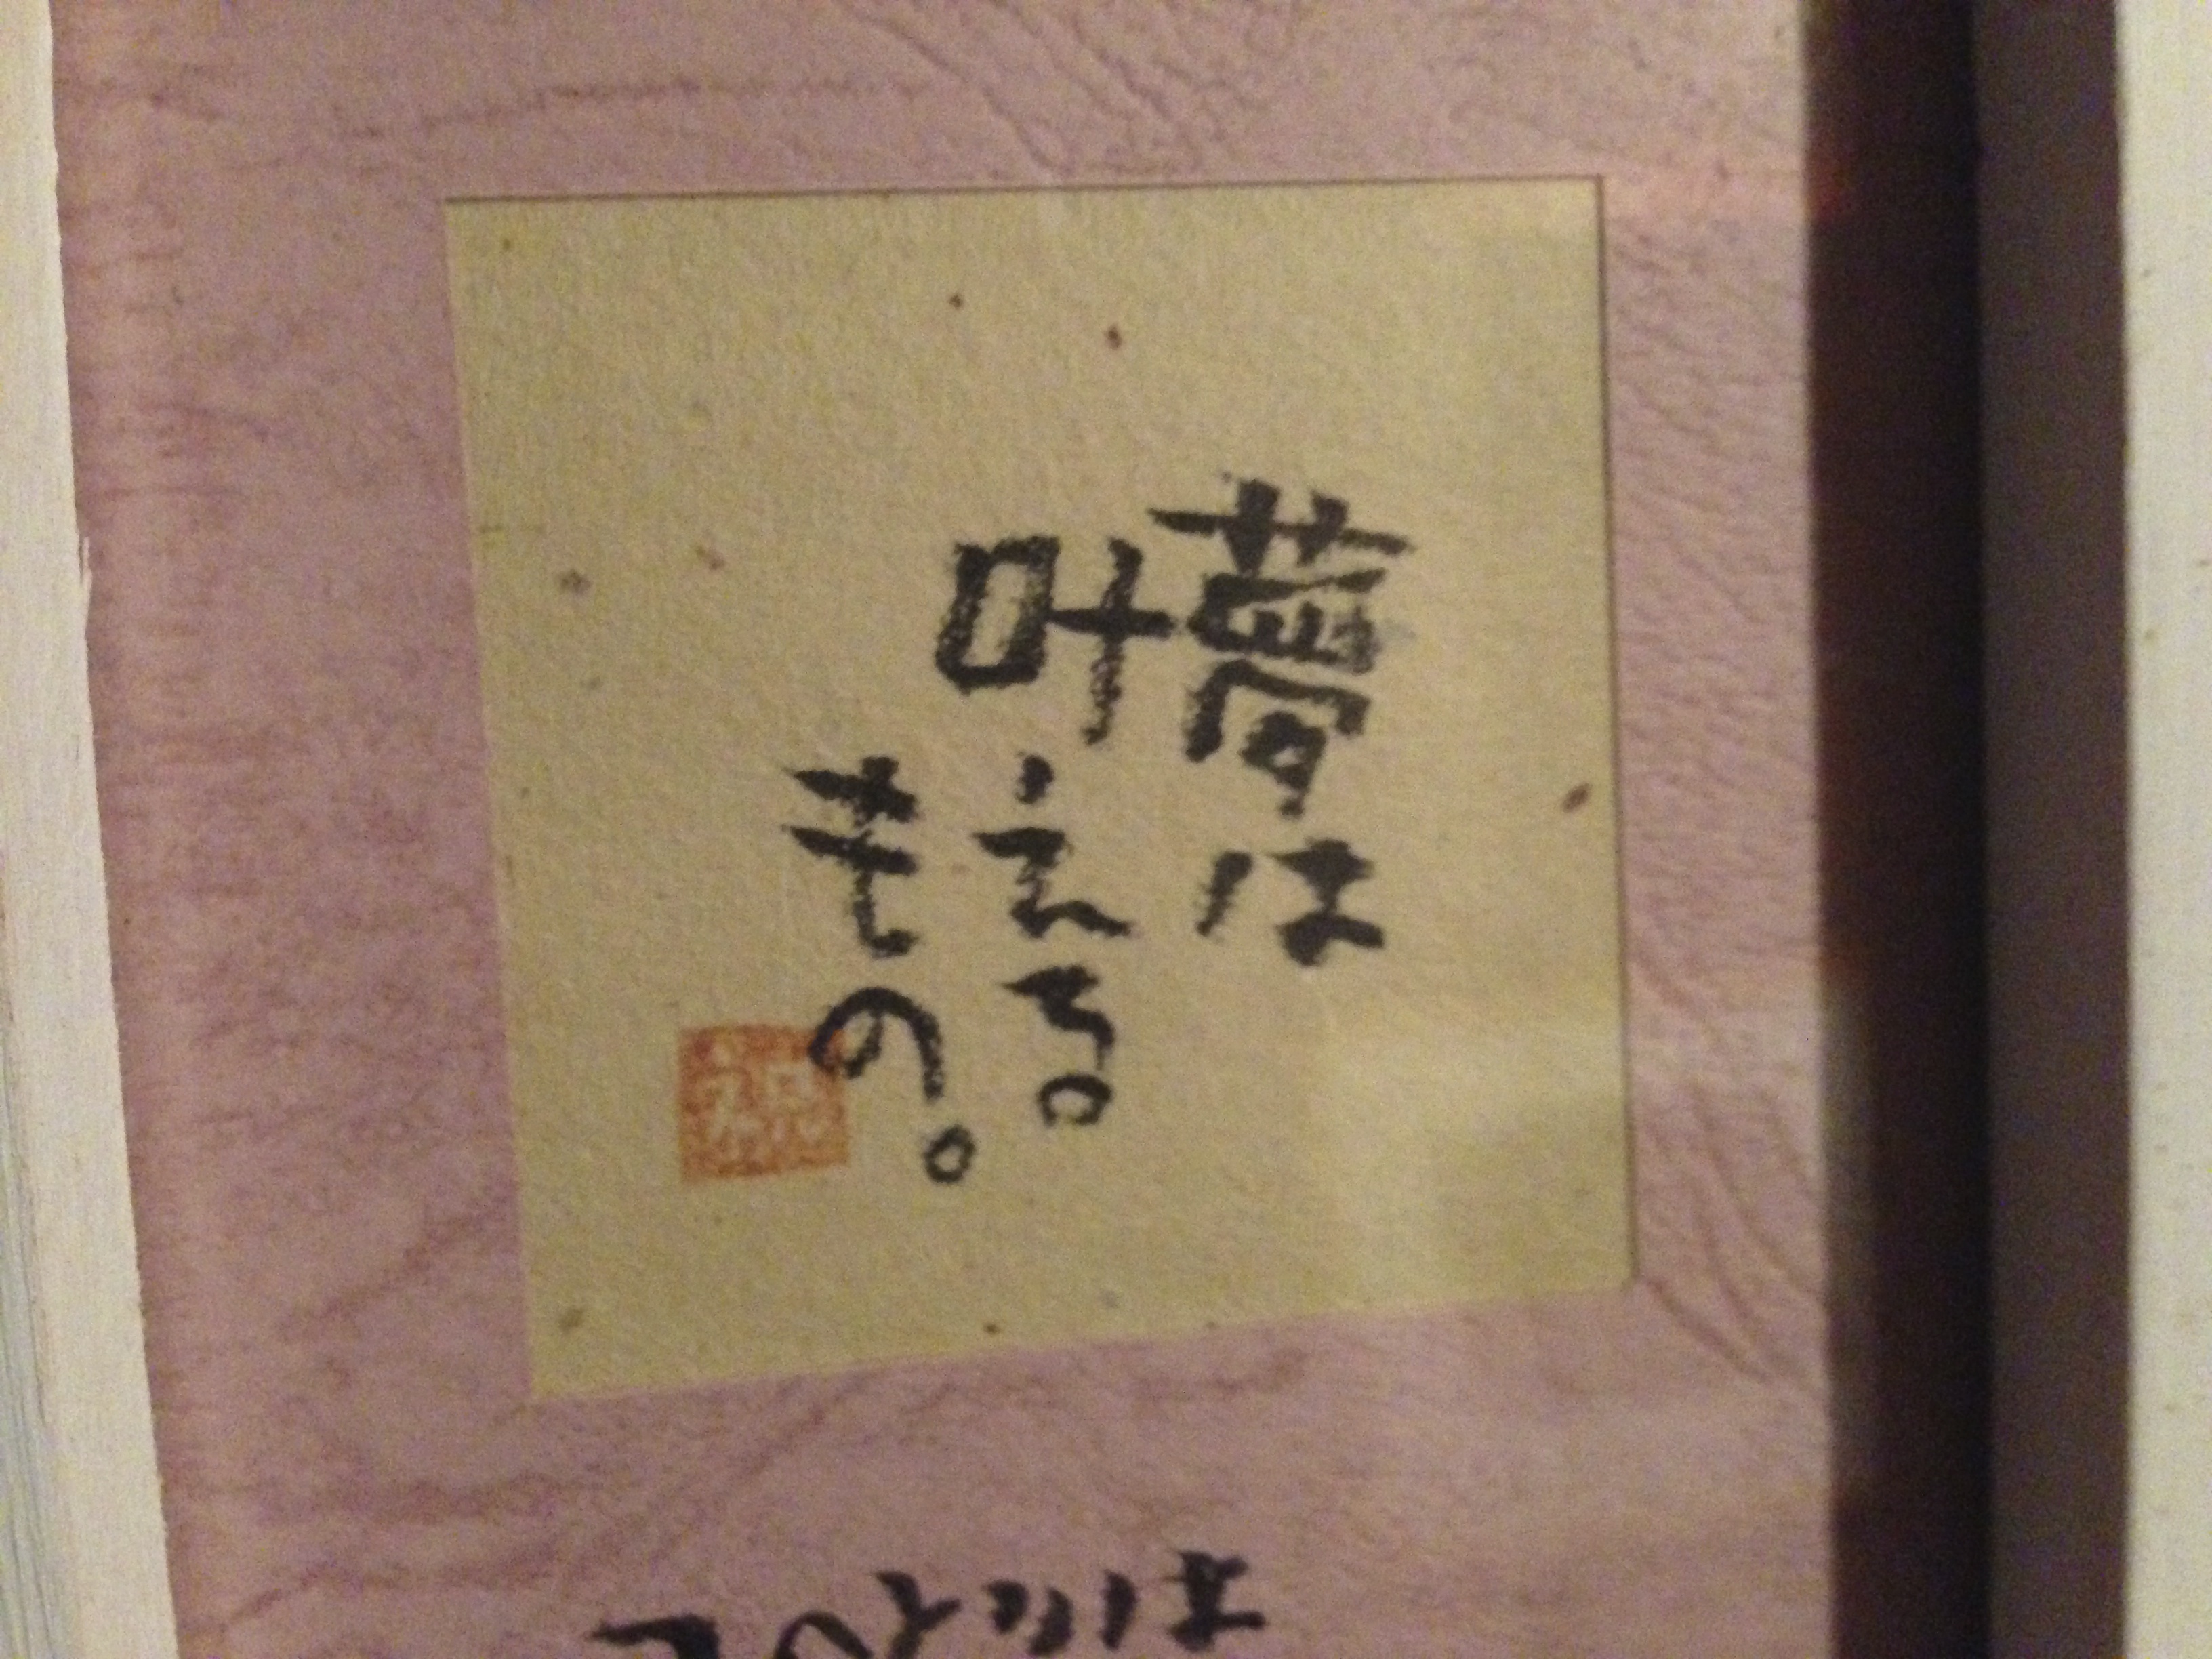 夢は
叶える
もの。